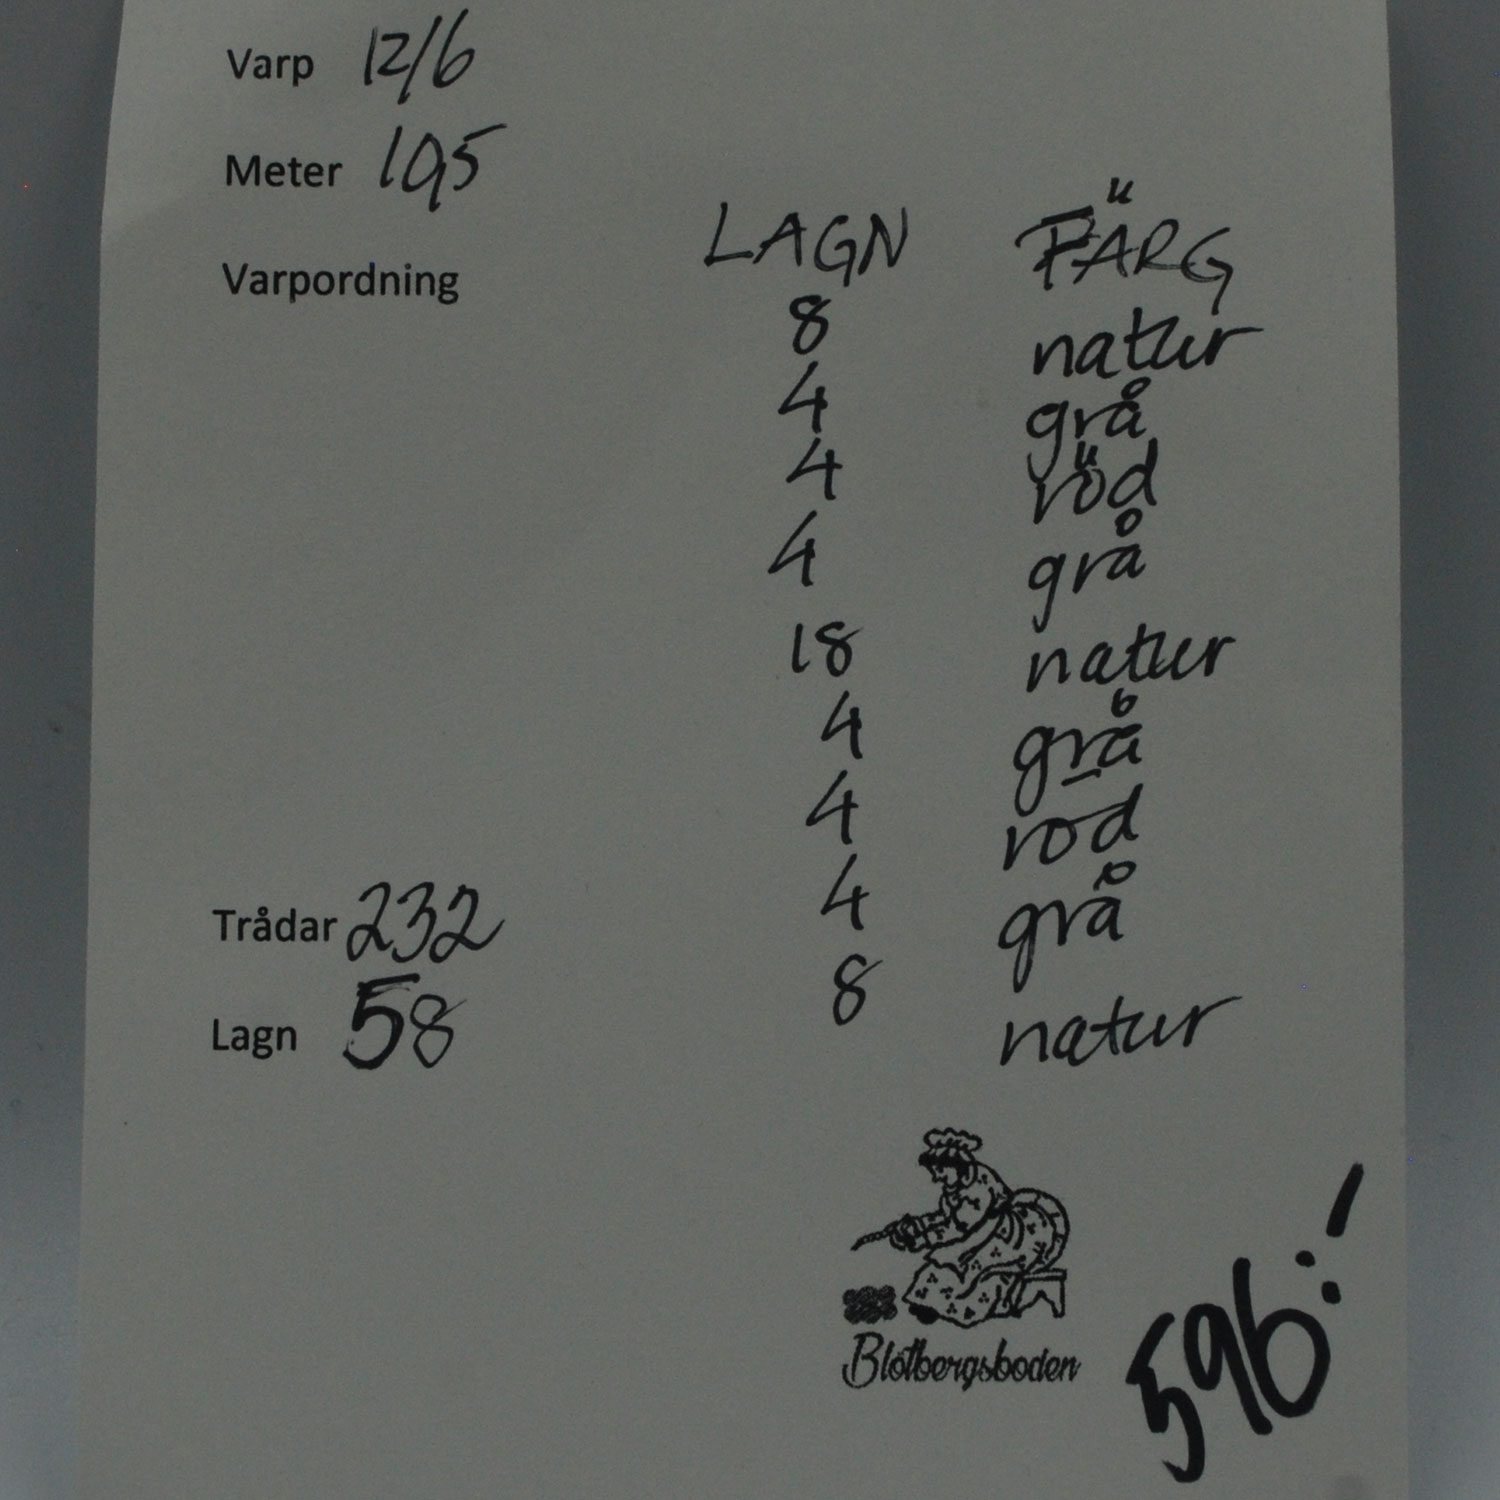 Varp 12/6
Meter 195
Varpordning LAGN FÄRG
8 natur
4 grå
4 röd
4 grå
18 natur
4 grå
4 röd
4 grå
8 natur
Trådar 232
Lagn 58
Blötbergsboden
596:-